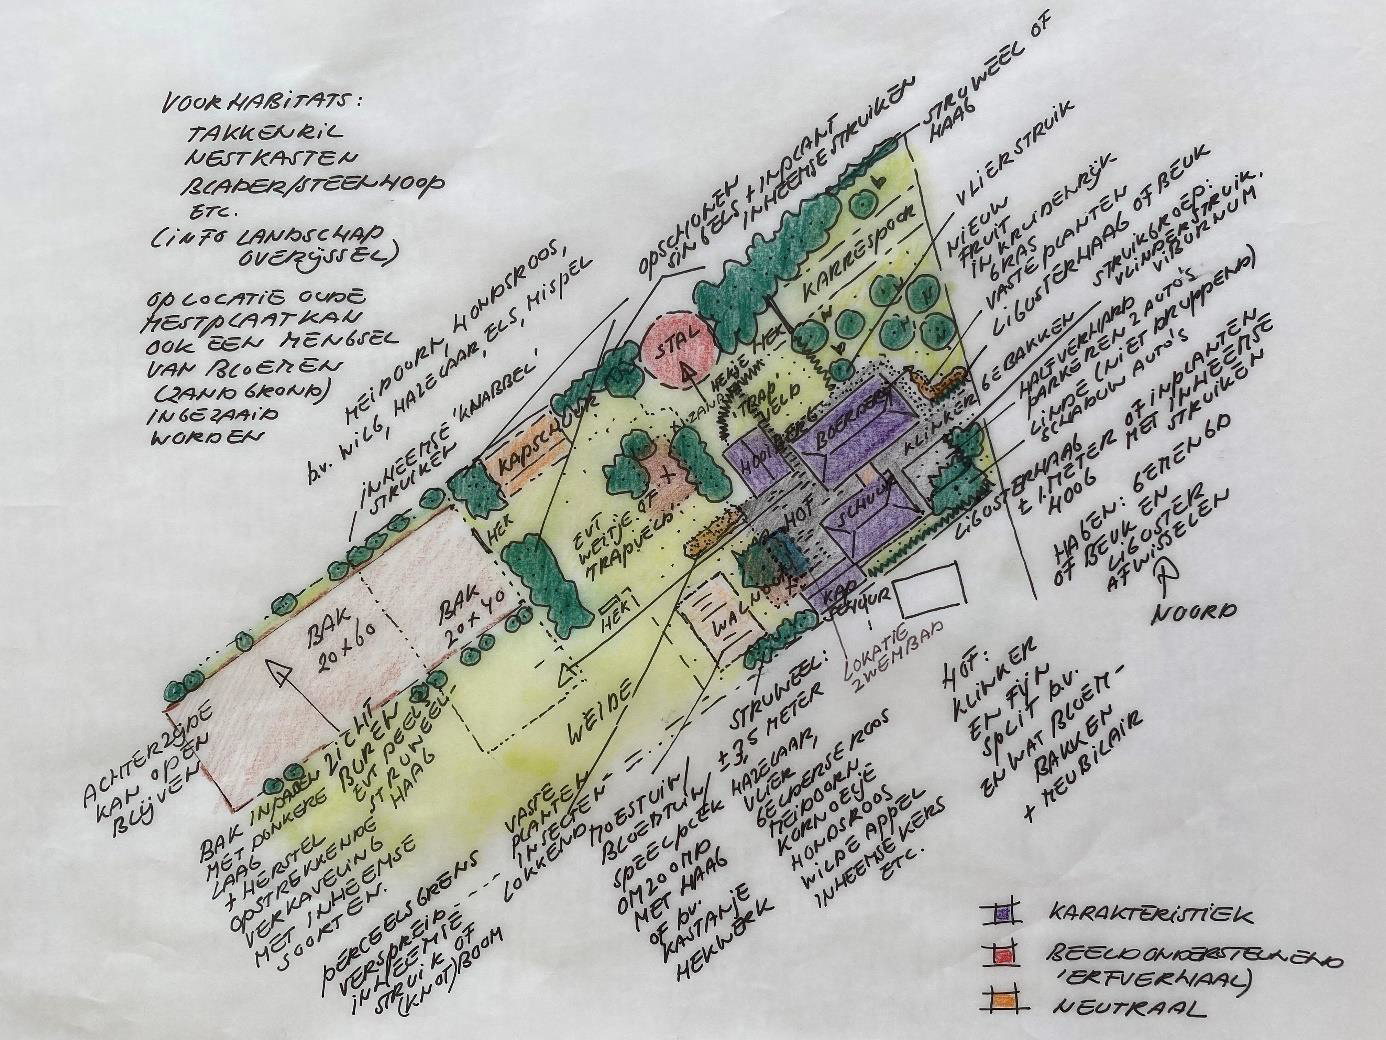 VOOR HABITATS:
TAKKENRIL
NESTKASTEN
BLADER/STEENHOOP
ETC.
(INFO LANDSCHAP
OVERIJSSEL)
OP LOCATIE OUDE
MESTPLAAT KAN
OOK EEN MENGSEL
VAN BLOEMEN
(ZANDGROND)
INGEZAAID
WORDEN
MEIDOORN, HONDSROOS,
b.v. WILG, HAZELAAR, ELS, MISPEL
INHEEMSE 'KNABBEL'
STRUIKEN
OPSCHONEN
SINGELS + INPLANT
INHEEMSE STRUIKEN
STRUWEEL OF
HAAG
VLIERSTRUIK
NIEUW
FRUIT
IN KRUIDENRIJK
GRAS
VASTE PLANTEN
LIGUSTERHAAG OF BEUK
STRUIKGROEP:
VLINDERSTRUIK,
VIBURNUM
GEBAKKEN
HALFVERHARD
PARKEREN 2 AUTO'S
LINDE (NIET DRUPPEND)
SCHADUW AUTO'S
LIGUSTERHAAG OF INPLANTEN
± 1 METER MET INHEEMSE
HOOG STRUIKEN
HAGEN: GEMENGD
OF BEUK EN
LIGUSTER
AFWISSELEN
NOORD
KARRESPOOR
STAL
HEKJE
HEK
ZAND
TRAP
VELD
KAPSCHUUR
HOOI
BERG
BOERDERIJ
KLINKER
SCHUUR
HOF
WALNOOT
KAP
SCHUUR
HEK
EVT
WEITJE OF
TRAPVELD
HEK
BAK
20x60
BAK
20x40
WEIDE
LOKATIE
ZWEMBAD
HOF:
KLINKER
EN FIJN
SPLIT b.v.
EN WAT BLOEM-
BAKKEN
+ MEUBILAIR
ACHTERZIJDE
KAN OPEN
BLIJVEN
BAK INPADEN ZICHT
MET DONKERE BUREN
LAAG EVT DEELS
+ HERSTEL STRUWEEL-
OPSTREKKENDE HAAG
VERKAVELING
MET INHEEMSE
SOORTEN.
PERCEELSGRENS
VERSPREID
INHEEMSE
STRUIK OF
(KNOT)BOOM
VASTE
PLANTEN
INSECTEN
LOKKEND
MOESTUIN/
BLOEMTUIN/
SPEELPLEK
OMZOOMD
MET HAAG
OF b.v.
KASTANJE
HEKWERK
STRUWEEL:
± 3,5 METER
HAZELAAR,
VLIER
GELDERSE ROOS
MEIDOORN
KORNOELJE
HONDSROOS
WILDE APPEL
INHEEMSE KERS
ETC.
KARAKTERISTIEK
BEELDONDERSTEUNEND
'ERFVERHAAL)
NEUTRAAL